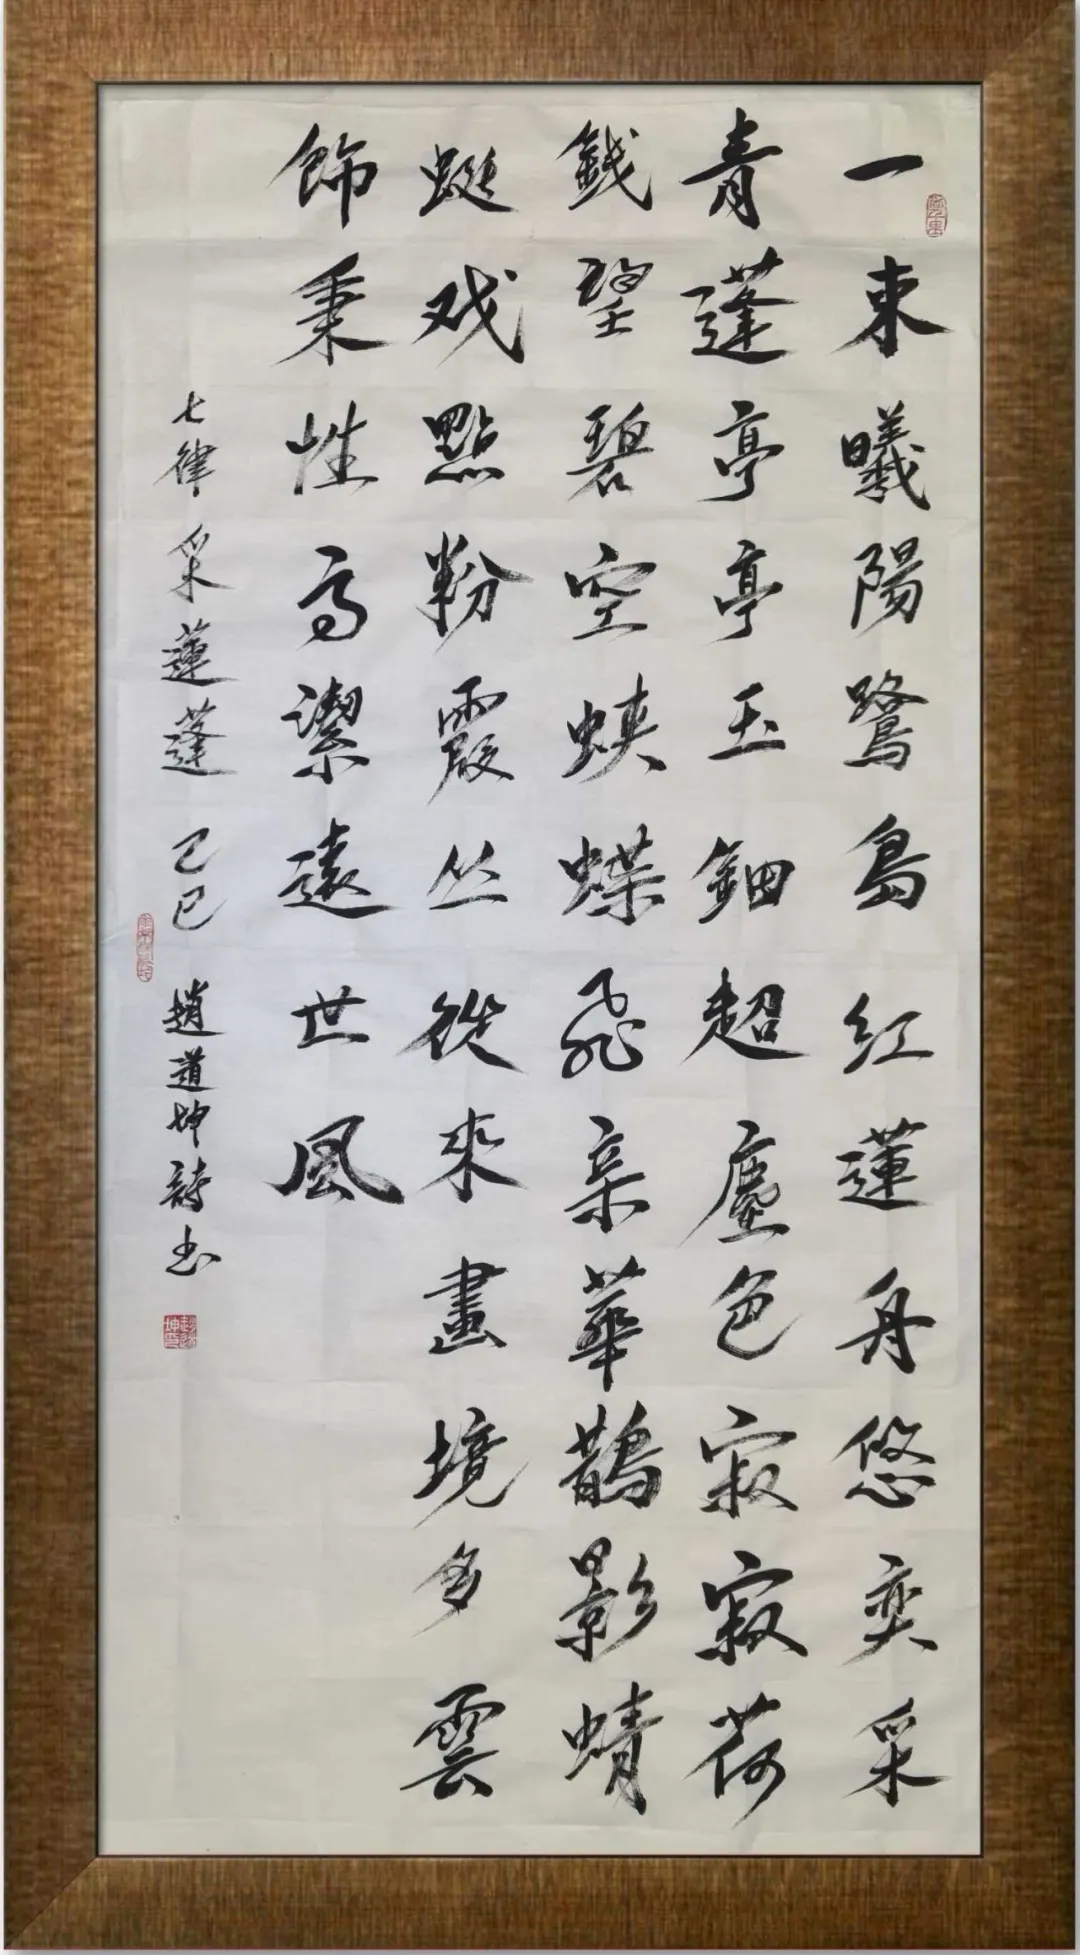 一束曦陽鷺島紅蓮舟悠奕采
青蓬亭亭玉鈿超塵色寂寂荷
錢望碧空蛺蝶飛來華鵲影蜻
蜓戏點粉霞丛從來畫境多雲
飾秉性高潔遠世風
七律 采蓮蓬 乙巳 趙道坤詩书